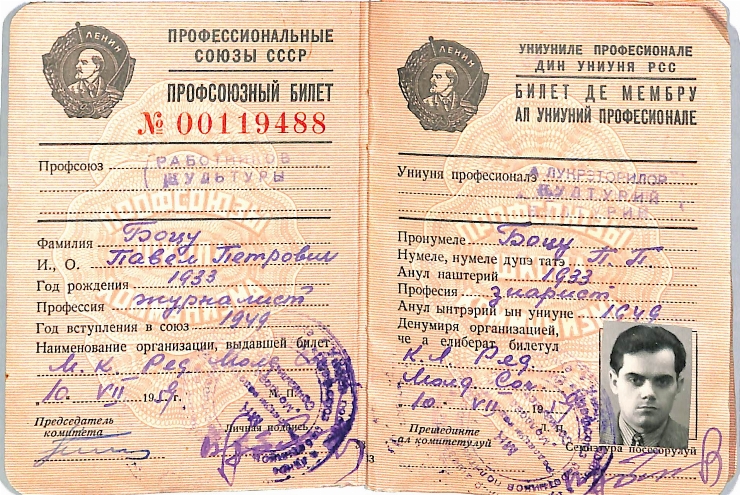 ЛЕНИН
ПРОФЕССИОНАЛЬНЫЕ
СОЮЗЫ СССР
ПРОФСОЮЗНЫЙ БИЛЕТ
№ 00119488
Профсоюз РАБОТНИКОВ
КУЛЬТУРЫ
Фамилия Боцу
И., О. Павел Петрович
Год рождения 1933
Профессия журналист
Год вступления в союз 1949
Наименование организации, выдавшей билет
М. К. Ред. Молд.
10. VII 19 г.
Председатель
комитета
Личная подпись
ЛЕНИН
УНИУНИЛЕ ПРОФЕСИОНАЛЕ
ДИН УНИУНЯ РСС
БИЛЕТ ДЕ МЕМБРУ
АЛ УНИУНИЙ ПРОФЕСИОНАЛЕ
Униуня професионалэ А ЛУКРЭТОРИЛОР
КУЛТУРИЙ
Пронумеле Боцу
Нумеле, нумеле дупэ татэ П. П.
Анул наштерий 1933
Професия зиарист
Анул ынтрэрий ын униуне 1949
Денумиря организацией,
че а елиберат билетул
Ред.
Молд. Соц.
10. VII 19
Прешединте
ал комитетулуй
Семнэтура посесорулуй